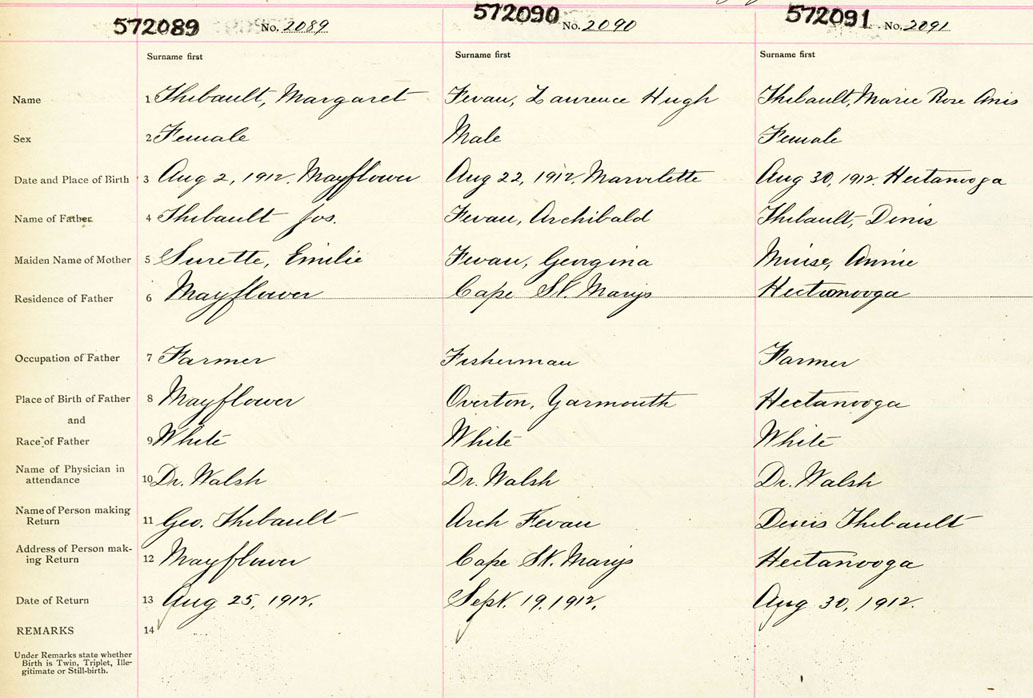 572089 No. 2089 572090 No. 2090 572091 No. 2091
Surname first Surname first Surname first
Name 1 Thibault, Margaret Fevau, Laurence Hugh Thibault, Marie Rose Anis
Sex 2 Female Male Female
Date and Place of Birth 3 Aug 2, 1912. Mayflower Aug 22, 1912 Marvilette Aug 30, 1912. Hectanooga
Name of Father 4 Thibault Jos. Fevau, Archibald Thibault, Denis
Maiden Name of Mother 5 Surette, Emilie Fevau, Georgina Muise, Annie
Residence of Father 6 Mayflower Cape St. Marys Hectanooga
Occupation of Father 7 Farmer Fisherman Farmer
Place of Birth of Father 8 Mayflower Overton, Yarmouth Hectanooga
and
Race of Father 9 White White White
Name of Physician in
attendance 10 Dr. Walsh Dr. Walsh Dr. Walsh
Name of Person making
Return 11 Geo. Thibault Arch Fevau Denis Thibault
Address of Person mak-
ing Return 12 Mayflower Cape St. Marys Hectanooga
Date of Return 13 Aug 25, 1912. Sept. 19, 1912. Aug 30, 1912.
REMARKS 14
Under Remarks state whether
Birth is Twin, Triplet, Ille-
gitimate or Still-birth.